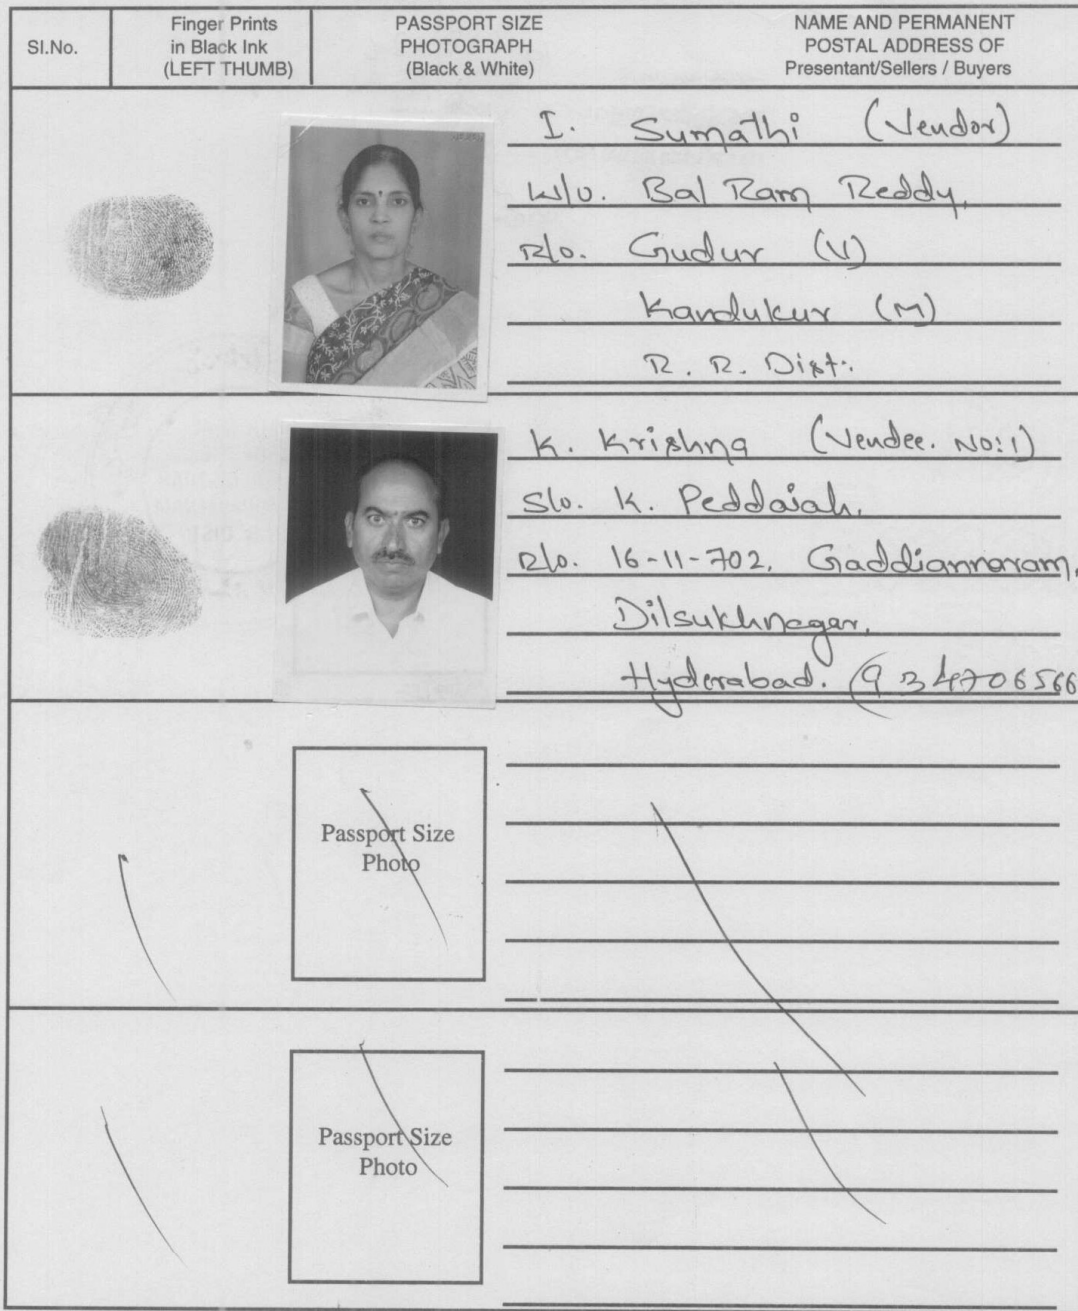 Sl.No.
Finger Prints
in Black Ink
(LEFT THUMB)
PASSPORT SIZE
PHOTOGRAPH
(Black & White)
NAME AND PERMANENT
POSTAL ADDRESS OF
Presentant/Sellers / Buyers
I. Sumathi (Vendor)
W/o. Bal Ram Reddy,
R/o. Gudur (V)
Kandukur (M)
R. R. Dist.
K. Krishna (Vendee. No:1)
S/o. K. Peddaiah.
R/o. 16-11-702, Gaddiannaram,
Dilsukhnagar,
Hyderabad. (934706566
Passport Size
Photo
Passport Size
Photo